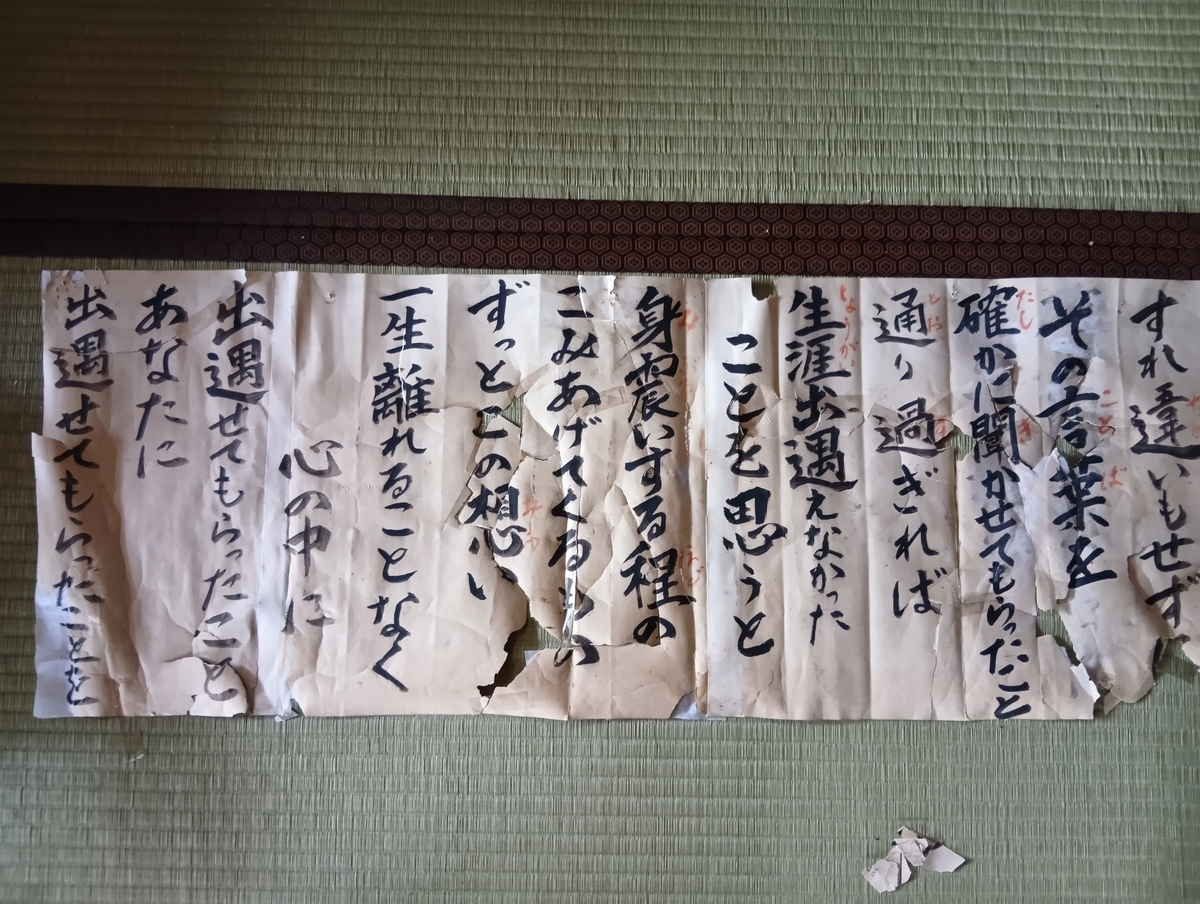 すれ違いもせず
その言葉を
確かに聞かせてもらったこと
通り過ぎれば
生涯出遇えなかった
ことを思うと
身震いする程の
こみあげてくるもの
ずっとこの想い
一生離れることなく
心の中に
出遇せてもらったこと
あなたに
出遇せてもらったことを